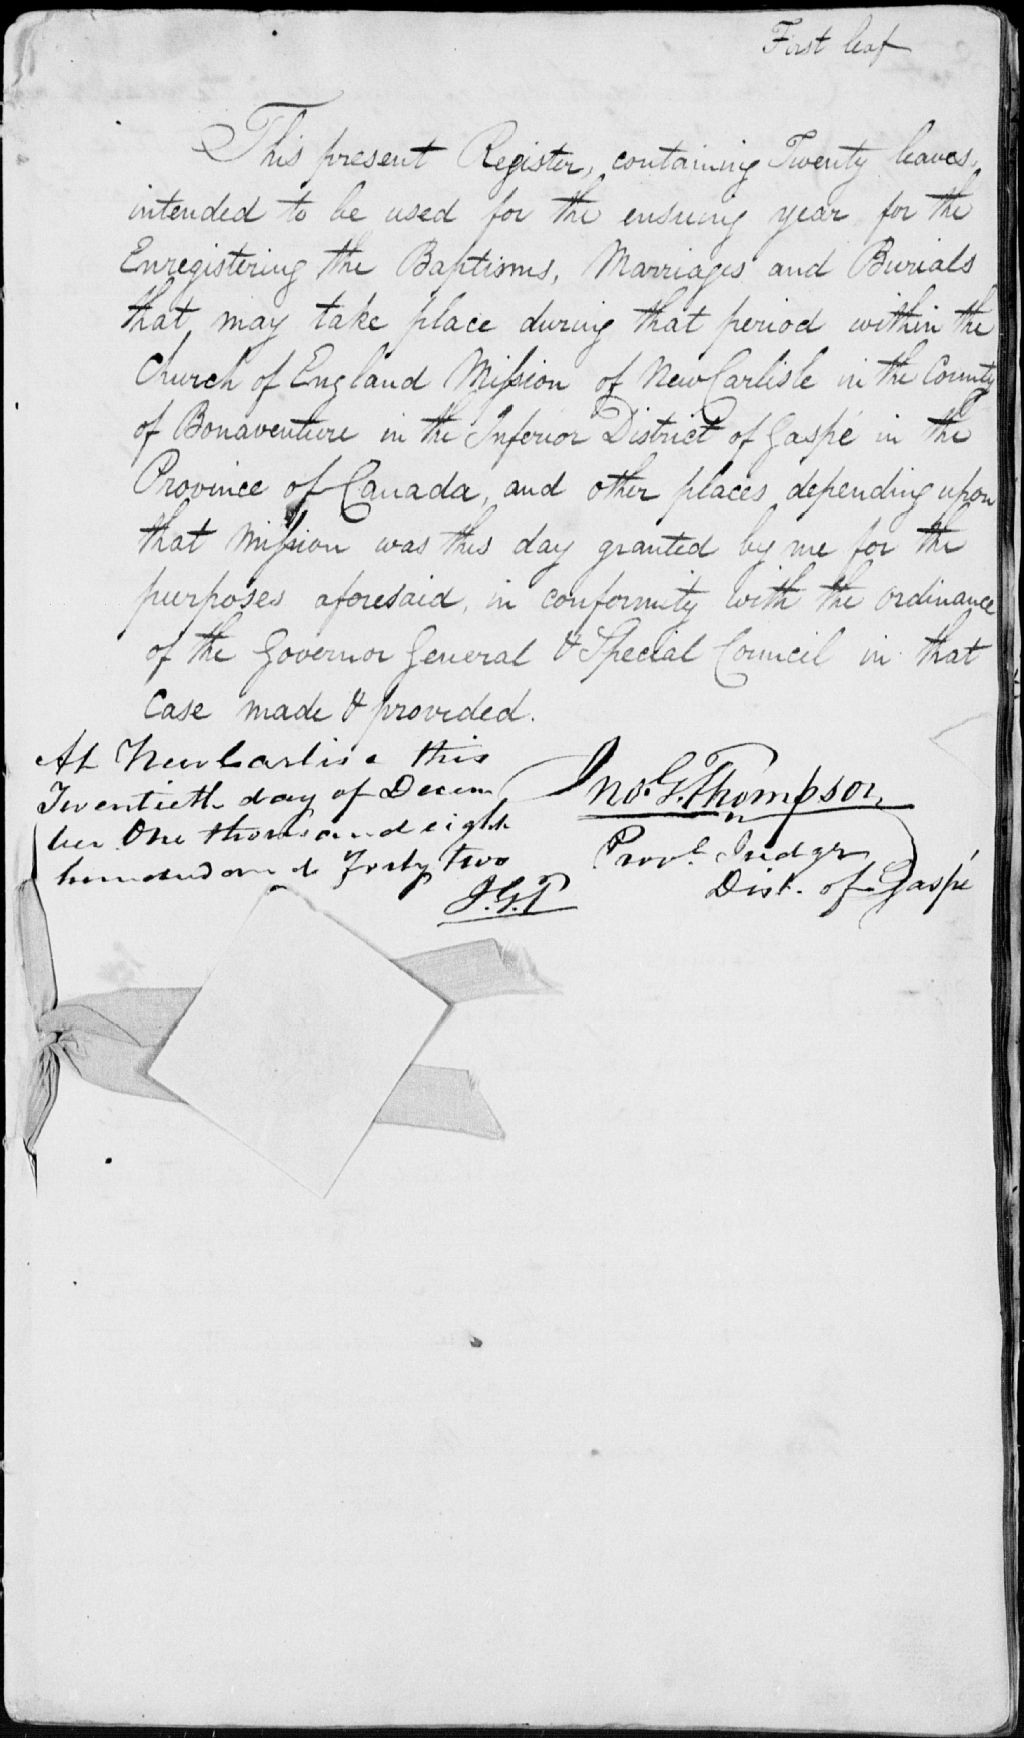 First leaf
This present Register, containing Twenty leaves,
intended to be used for the ensuing year for the
Enregistering the Baptisms, Marriages and Burials
that may take place during that period within the
Church of England Mission of New Carlisle in the County
of Bonaventure in the Inferior District of Gaspé in the
Province of Canada, and other places depending upon
that Mission was this day granted by me for the
purposes aforesaid, in conformity with the ordinance
of the Governor General & Special Council in that
Case made & provided.
At New Carlisle this
Twentieth day of Decem
ber One thousand eight
hundred and Forty two
J.G.T
Jno. G. Thompson,
Provl. Judge
Dist. of Gaspé